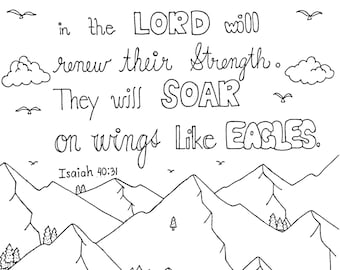 in the LORD will
renew their Strength.
They will SOAR
on wings like EAGLES.
Isaiah 40:31